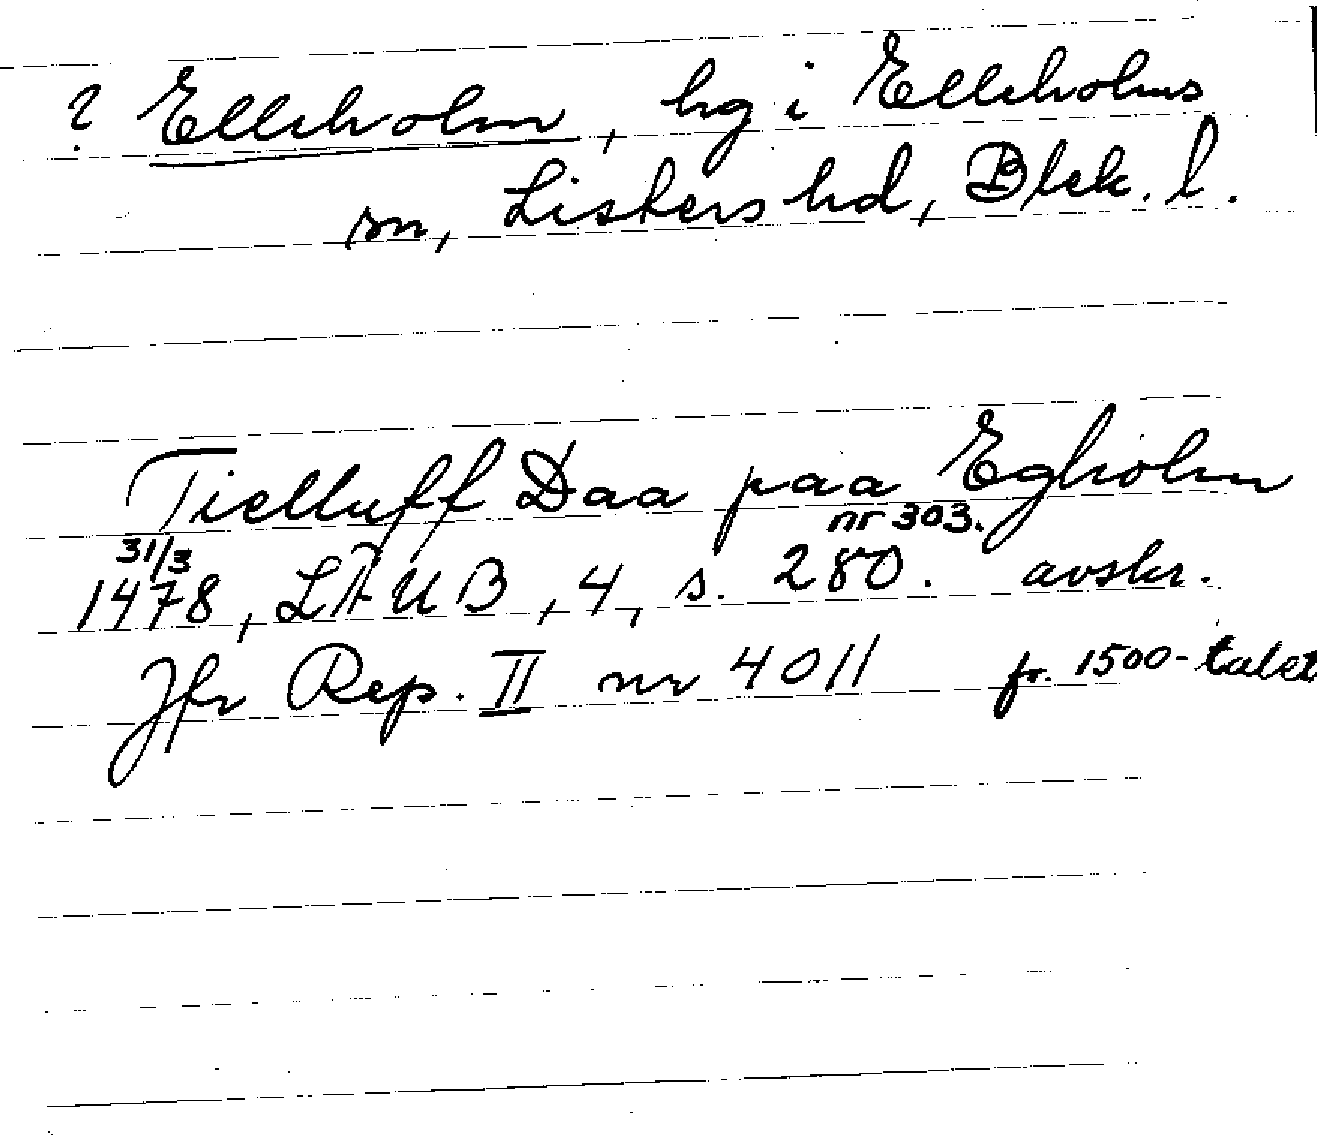 ? Elleholm, hg i Elleholms
sn, Listers hd, Blek. l.
Tielluff Daa paa Egholm
nr 303.
31/3
1478, LÄUB, 4, s. 280. avskr.
Jfr Rep. II nr 4011 fr. 1500-talet